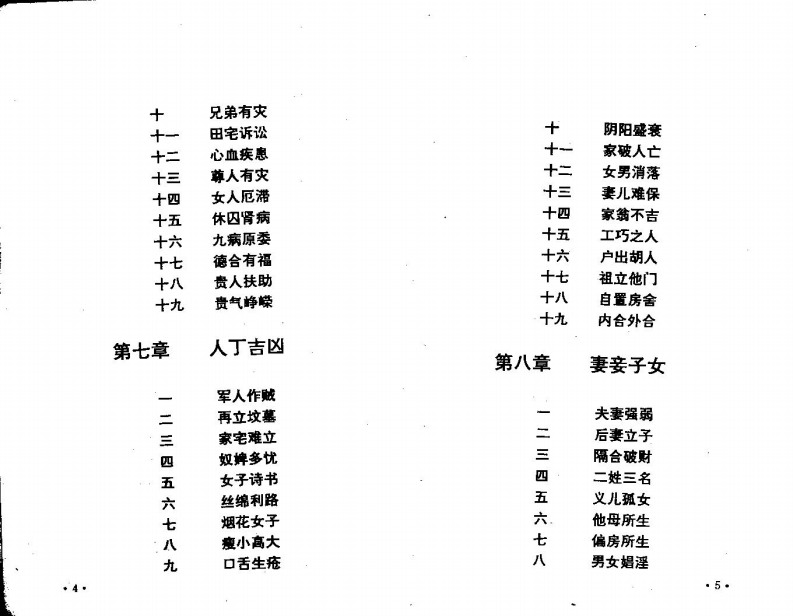 十 兄弟有灾
十一 田宅诉讼
十二 心血疾患
十三 尊人有灾
十四 女人厄滞
十五 休囚肾病
十六 九病原委
十七 德合有福
十八 贵人扶助
十九 贵气峥嵘
第七章 人丁吉凶
一 军人作贼
二 再立坟墓
三 家宅难立
四 奴婢多忧
五 女子诗书
六 丝绵利路
七 烟花女子
八 瘦小高大
九 口舌生疮
·4·
十 阴阳盛衰
十一 家破人亡
十二 女男消落
十三 妻儿难保
十四 家翁不吉
十五 工巧之人
十六 户出胡人
十七 祖立他门
十八 自置房舍
十九 内合外合
第八章 妻妾子女
一 夫妻强弱
二 后妻立子
三 隔合破财
四 二姓三名
五 义儿孤女
六 他母所生
七 偏房所生
八 男女娼淫
·5·